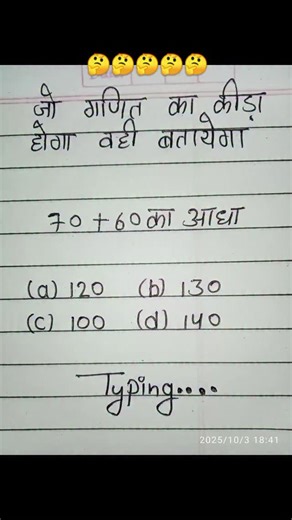 🤔🤔🤔🤔🤔
जो गणित का कीड़ा
होगा वही बतायेगा
70 + 60 का आधा
(a) 120 (b) 130
(c) 100 (d) 140
Typing....
2025/10/3 18:41